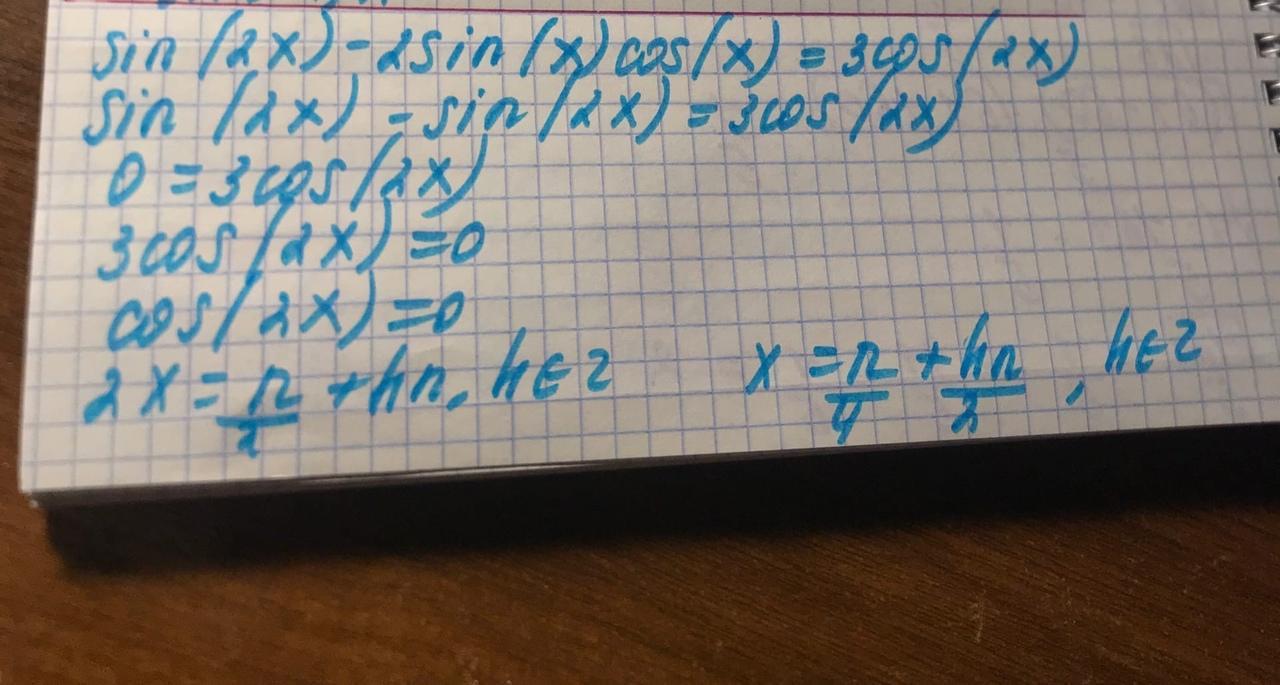 sin (2x) - 2sin (x) cos(x) = 3cos(2x)
sin (2x) - sin (2x) = 3cos (2x)
0 = 3cos(2x)
3cos (2x) = 0
cos(2x) = 0
2x = π/2 + πn, n ∈ Z x = π/4 + πn/2, n ∈ Z